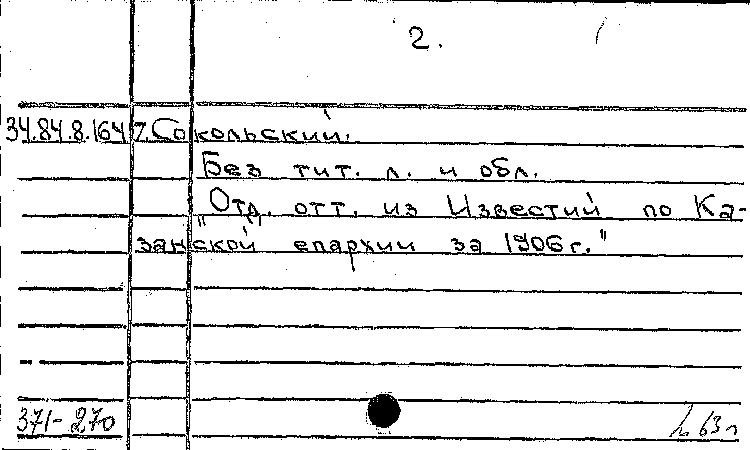 2.
34.84.8.164 7. Сокольский.
Без тит. л. и обл.
"Отд. отт. из Известий по Ка-
занской епархии за 1906 г."
371-270 63